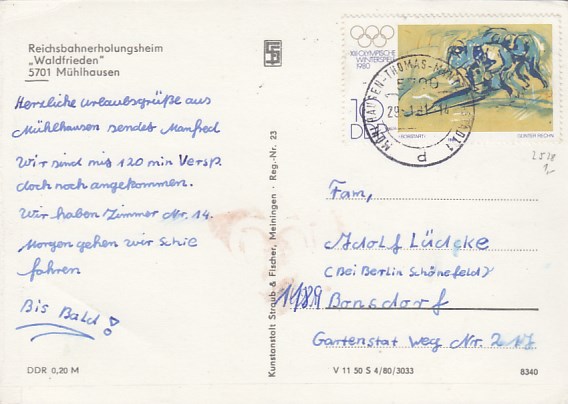 Reichsbahnerholungsheim
„Waldfrieden"
5701 Mühlhausen
Herzliche urlaubsgrüße aus
Mühlhausen sendet Manfred
Wir sind mis 120 min Versp.
doch noch angekommen.
Wir haben Zimmer Nr. 14.
Morgen gehen wir Schie
fahren
Bis Bald!
DDR 0,20 M
Kunstanstalt Straub & Fischer, Meiningen · Reg.-Nr. 23
XIII. OLYMPISCHE
WINTERSPIELE
1980
10
DDR
GÜNTER RECHN
Fam,
Adolf Lüdcke
(Bei Berlin Schönefeld)
1189 Bonsdorf
Gartenstat Weg Nr. 217
V 11 50 S 4/80/3033
8340